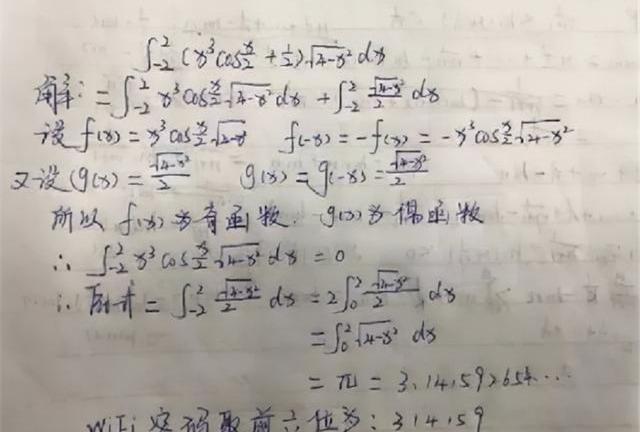 ∫₋₂² (x³cos x/2 + 1/2)√(4-x²) dx
解: = ∫₋₂² x³cos x/2 √(4-x²) dx + ∫₋₂² √(4-x²)/2 dx
设 f(x) = x³cos x/2 √(4-x²) f(-x) = -f(x) = -x³cos x/2 √(4-x²)
又设 g(x) = √(4-x²)/2 g(x) = g(-x) = √(4-x²)/2
所以 f(x) 为奇函数. g(x) 为偶函数
∴ ∫₋₂² x³cos x/2 √(4-x²) dx = 0
∴ 原式 = ∫₋₂² √(4-x²)/2 dx = 2∫₀² √(4-x²)/2 dx
= ∫₀² √(4-x²) dx
= π = 3.141592654...
WiFi 密码取前六位为: 314159